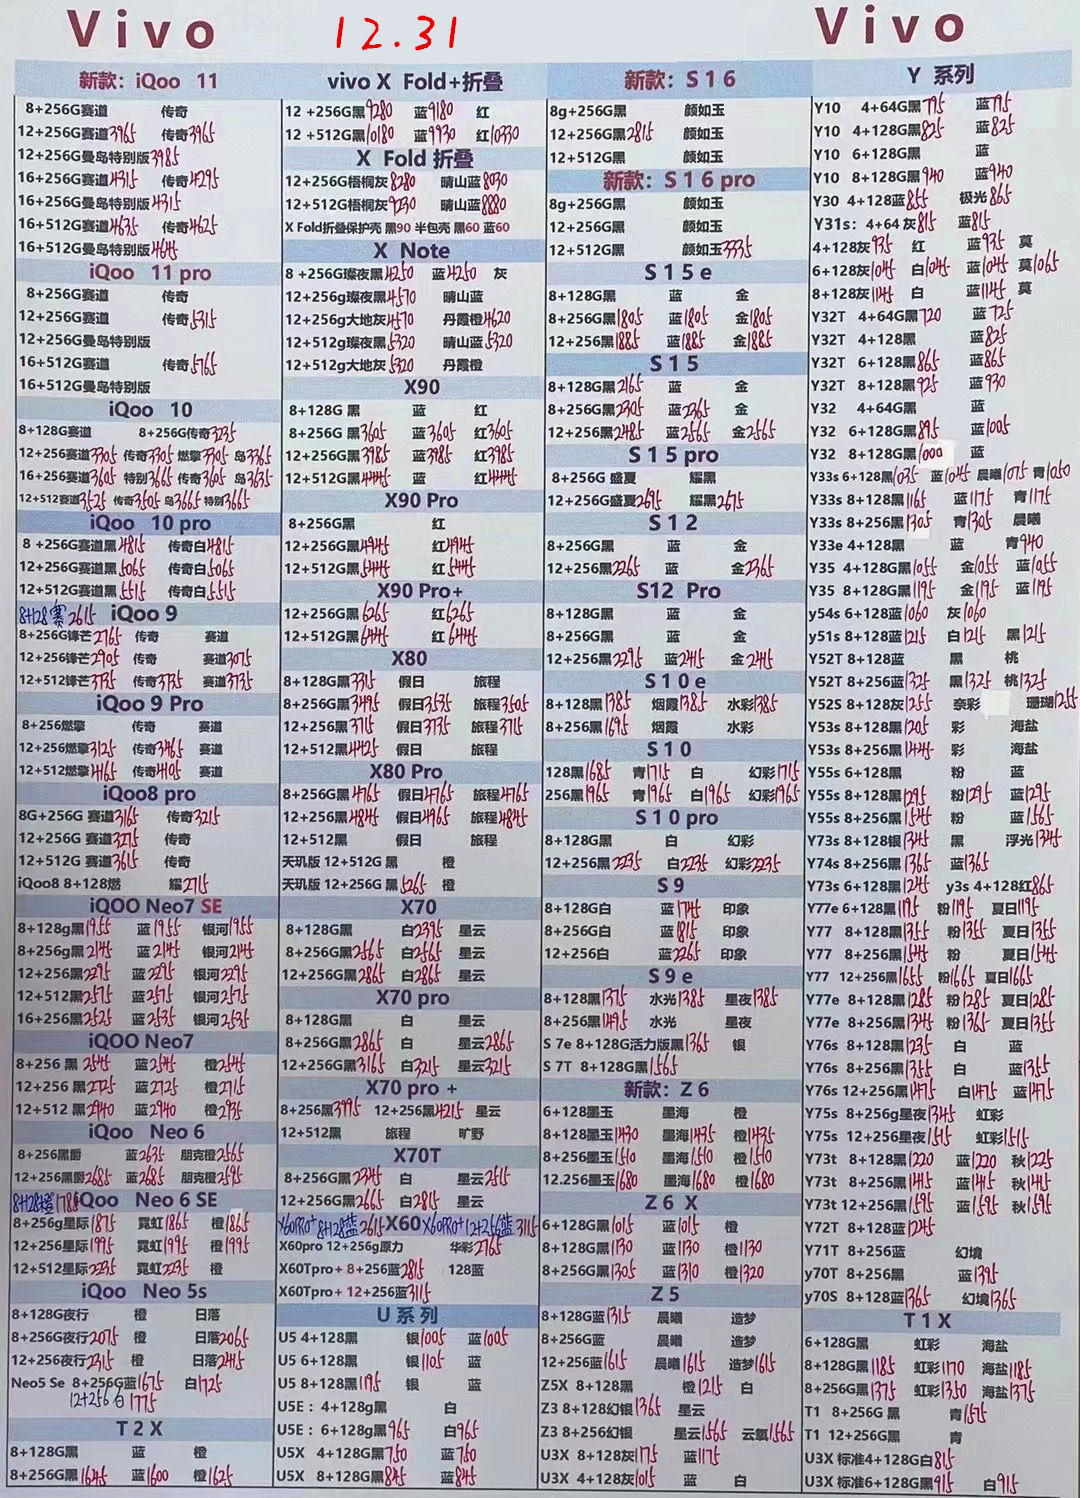 Vivo
12.31
Vivo
新款：iQoo 11
8+256G赛道 传奇
12+256G赛道3965 传奇3965
12+256G曼岛特别版3985
16+256G赛道4315 传奇4295
16+256G曼岛特别版4315
16+512G赛道4635 传奇4625
16+512G曼岛特别版4645
iQoo 11 pro
8+256G赛道 传奇
12+256G赛道 传奇5315
12+256G曼岛特别版
16+512G赛道 传奇5765
16+512G曼岛特别版
iQoo 10
8+128G赛道 8+256G传奇3235
12+256赛道3305 传奇3305 燃擎3305 岛3365
16+256赛道3605 特别3665 传奇3605 岛3635
12+512赛道3525 传奇3505 岛3665 特别3665
iQoo 10 pro
8 +256G赛道黑4815 传奇白4815
12+256G赛道黑5065 传奇白5065
12+512G赛道黑5515 传奇白5515
8+128赛2615 iQoo 9
8+256G锋芒2765 传奇 赛道
12+256锋芒2905 传奇 赛道3075
12+512锋芒3735 传奇3735 赛道3735
iQoo 9 Pro
8+256燃擎 传奇 赛道
12+256燃擎3125 传奇3465 赛道
12+512燃擎4165 传奇4105 赛道
iQoo8 pro
8G+256G 赛道3165 传奇3215
12+256G 赛道3275 传奇
12+512G 赛道3615 传奇
iQoo8 8+128燃 耀2715
iQOO Neo7 SE
8+128g黑1955 蓝1955 银河1955
8+256g黑2145 蓝2145 银河2145
12+256黑2295 蓝2295 银河2295
12+512黑2575 蓝2575 银河2575
16+256黑2525 蓝2535 银河2535
iQOO Neo7
8+256 黑2545 蓝2545 橙2545
12+256 黑2725 蓝2725 橙2715
12+512 黑2940 蓝2940 橙2935
iQoo Neo 6
8+256黑爵 蓝2635 朋克橙2565
12+256黑爵2685 蓝2685 朋克橙2595
8+128橙1785 iQoo Neo 6 SE
8+256g星际1875 霓虹1865 橙1865
12+256星际1995 霓虹1995 橙1995
12+512星际2235 霓虹2235 橙
iQoo Neo 5s
8+128G夜行 橙 日落
8+256G夜行2075 橙 日落2065
12+256夜行2315 橙 日落2415
Neo5 Se 8+256G蓝1675 白1725
12+256白1775
T2X
8+128G黑 蓝 橙
8+256G黑1645 蓝1600 橙1625
vivo X Fold+折叠
12 +256G黑9280 蓝9180 红
12 +512G黑10180 蓝9930 红10330
X Fold 折叠
12+256G梧桐灰8280 晴山蓝8030
12+512G梧桐灰9230 晴山蓝8880
X Fold折叠保护壳 黑90 半包壳 黑60 蓝60
X Note
8 +256G璨夜黑4250 蓝4250 灰
12+256g璨夜黑4570 晴山蓝
12+256g大地灰4570 丹霞橙4620
12+512g璨夜黑5320 晴山蓝5320
12+512g大地灰5320 丹霞橙
X90
8+128G 黑 蓝 红
8+256G 黑3605 蓝3605 红3605
12+256G黑3985 蓝3985 红3985
12+512G黑4445 蓝 红4445
X90 Pro
8+256G黑 红
12+256G黑4945 红4945
12+512G黑5445 红5445
X90 Pro+
12+256G黑6265 红6265
12+512G黑6445 红6445
X80
8+128G黑3315 假日 旅程
8+256G黑3495 假日3535 旅程3505
12+256黑3715 假日3735 旅程3715
12+512黑4425 假日 旅程
X80 Pro
8+256G黑4765 假日4765 旅程4765
12+256黑4845 假日4965 旅程4845
12+512黑 假日 旅程
天玑版 12+512G 黑 橙
天玑版 12+256G 黑5265 橙
X70
8+128G黑 白2395 星云
8+256G黑2565 白2565 星云
12+256G黑2865 白2865 星云
X70 pro
8+128G黑 白 星云
8+256G黑2865 白 星云2865
12+256G黑3165 白3215 星云3215
X70 pro +
8+256黑3995 12+256黑4215 星云
12+512黑 旅程 旷野
X70T
8+256G黑2345 白 星云2515
12+256G黑2665 白2815 星云
X60PRO+8+128蓝2615 X60 X60PRO+12+256蓝3115
X60pro 12+256g原力 华彩2765
X60Tpro+ 8+256蓝2815 128蓝
X60Tpro+ 12+256蓝3115
U 系列
U5 4+128黑 银1005 蓝1005
U5 6+128黑 银1105 蓝
U5 8+128黑1195 银 蓝
U5E：4+128g黑 白
U5E：6+128g黑965 白965
U5X 4+128G黑750 蓝750
U5X 8+128G黑845 蓝845
新款：S16
8g+256G黑 颜如玉
12+256G黑2815 颜如玉
12+512G黑 颜如玉
新款：S16 pro
8g+256G黑 颜如玉
12+256G黑 颜如玉
12+512G黑 颜如玉3335
S15e
8+128G黑 蓝 金
8+256G黑1805 蓝1805 金1805
12+256黑1885 蓝1885 金1885
S15
8+128G黑2165 蓝 金
8+256G黑2305 蓝2365 金
12+256黑2485 蓝2565 金2565
S15 pro
8+256G 盛夏 耀黑
12+256G盛夏2695 耀黑2675
S12
8+256G黑 蓝 金
12+256黑2265 蓝 金2365
S12 Pro
8+128G黑 蓝 金
8+256G黑 蓝 金
12+256黑2295 蓝2415 金2415
S10e
8+128黑1385 烟霞1385 水彩1385
8+256黑1695 烟霞 水彩
S10
128黑1685 青1715 白 幻彩1715
256黑1965 青1965 白1965 幻彩1965
S10 pro
8+128G黑 白 幻彩
12+256黑2235 白2235 幻彩2235
S9
8+128G白 蓝1745 印象
8+256G白 蓝1815 印象
12+256白 蓝2265 印象
S9e
8+128黑1375 水光1385 星夜1385
8+256黑1495 水光 星夜
S 7e 8+128G活力版黑1365 银
S 7T 8+128G黑1565
新款：Z6
6+128墨玉 墨海 橙
8+128墨玉1430 墨海1435 橙1435
8+256墨玉1510 墨海1510 橙1510
12.256墨玉1680 墨海1680 橙1680
Z6 X
6+128G黑1015 蓝1015 橙
8+128G黑1130 蓝1130 橙1130
8+256G黑1305 蓝1310 橙1320
Z5
8+128G蓝1315 晨曦 造梦
8+256G蓝 晨曦 造梦
12+256蓝1615 晨曦1615 造梦1615
Z5X 8+128黑 橙1215 白
Z3 8+128幻银1365 星云
Z3 8+256幻银 星云1565 云氧1565
U3X 8+128灰1175 蓝1175
U3X 4+128灰1015 蓝 白
Y 系列
Y10 4+64G黑795 蓝795
Y10 4+128G黑825 蓝825
Y10 6+128G黑 蓝
Y10 8+128G黑940 蓝940
Y30 4+128蓝855 极光865
Y31s：4+64 灰815 蓝815
4+128灰935 红 蓝935 莫
6+128灰1045 白1045 蓝1045 莫1065
8+128灰1145 白 蓝1145 莫
Y32T 4+64G黑720 蓝725
Y32T 4+128黑 蓝825
Y32T 6+128黑865 蓝865
Y32T 8+128黑925 蓝930
Y32 4+64G黑 蓝
Y32 6+128G黑895 蓝1005
Y32 8+128G黑1000 蓝
Y33s 6+128黑1035 蓝1045 晨曦1075 青1050
Y33s 8+128黑1165 蓝1175 青1175
Y33s 8+256黑1305 青1305 晨曦
Y33e 4+128黑 蓝 青940
Y35 4+128G黑1055 金1055 蓝1055
Y35 8+128G黑1195 金1195 蓝1195
y54s 6+128蓝1060 灰1060
y51s 8+128蓝1215 白1215 黑1215
Y52T 8+128蓝 黑 桃
Y52T 8+256蓝1325 黑1325 桃1325
Y52S 8+128灰1255 奈彩 珊瑚1255
Y53s 8+128黑1205 彩 海盐
Y53s 8+256黑1445 彩 海盐
Y55s 6+128黑 粉 蓝
Y55s 8+128黑1295 粉1295 蓝1295
Y55s 8+256黑1545 粉 蓝1565
Y73s 8+128银1345 黑 浮光1345
Y74s 8+256黑1365 蓝1365
Y73s 6+128黑1245 y3s 4+128红865
Y77e 6+128黑1195 粉1195 夏日1195
Y77 8+128黑1355 粉1355 夏日1355
Y77 8+256黑1545 粉 夏日1545
Y77 12+256黑1655 粉1665 夏日1665
Y77e 8+128黑1285 粉1285 夏日1285
Y77e 8+256黑1345 粉1365 夏日1355
Y76s 8+128黑1235 白 蓝
Y76s 8+256黑1355 白 蓝1355
Y76s 12+256黑1475 白1475 蓝1475
Y75s 8+256g星夜1345 虹彩
Y75s 12+256星夜1515 虹彩1515
Y73t 8+128黑1220 蓝1220 秋1225
Y73t 8+256黑1445 蓝1445 秋1445
Y73t 12+256黑1595 蓝1595 秋1595
Y72T 8+128蓝1245
Y71T 8+256蓝 幻境
y70T 8+256黑 蓝1395
y70S 8+128蓝1365 幻境1365
T1X
6+128G黑 虹彩 海盐
8+128G黑1185 虹彩1170 海盐1185
8+256G黑1375 虹彩1350 海盐1375
T1 8+256G 黑 青1575
T1 12+256G黑 青
U3X 标准4+128G白815
U3X 标准6+128G黑915 白915